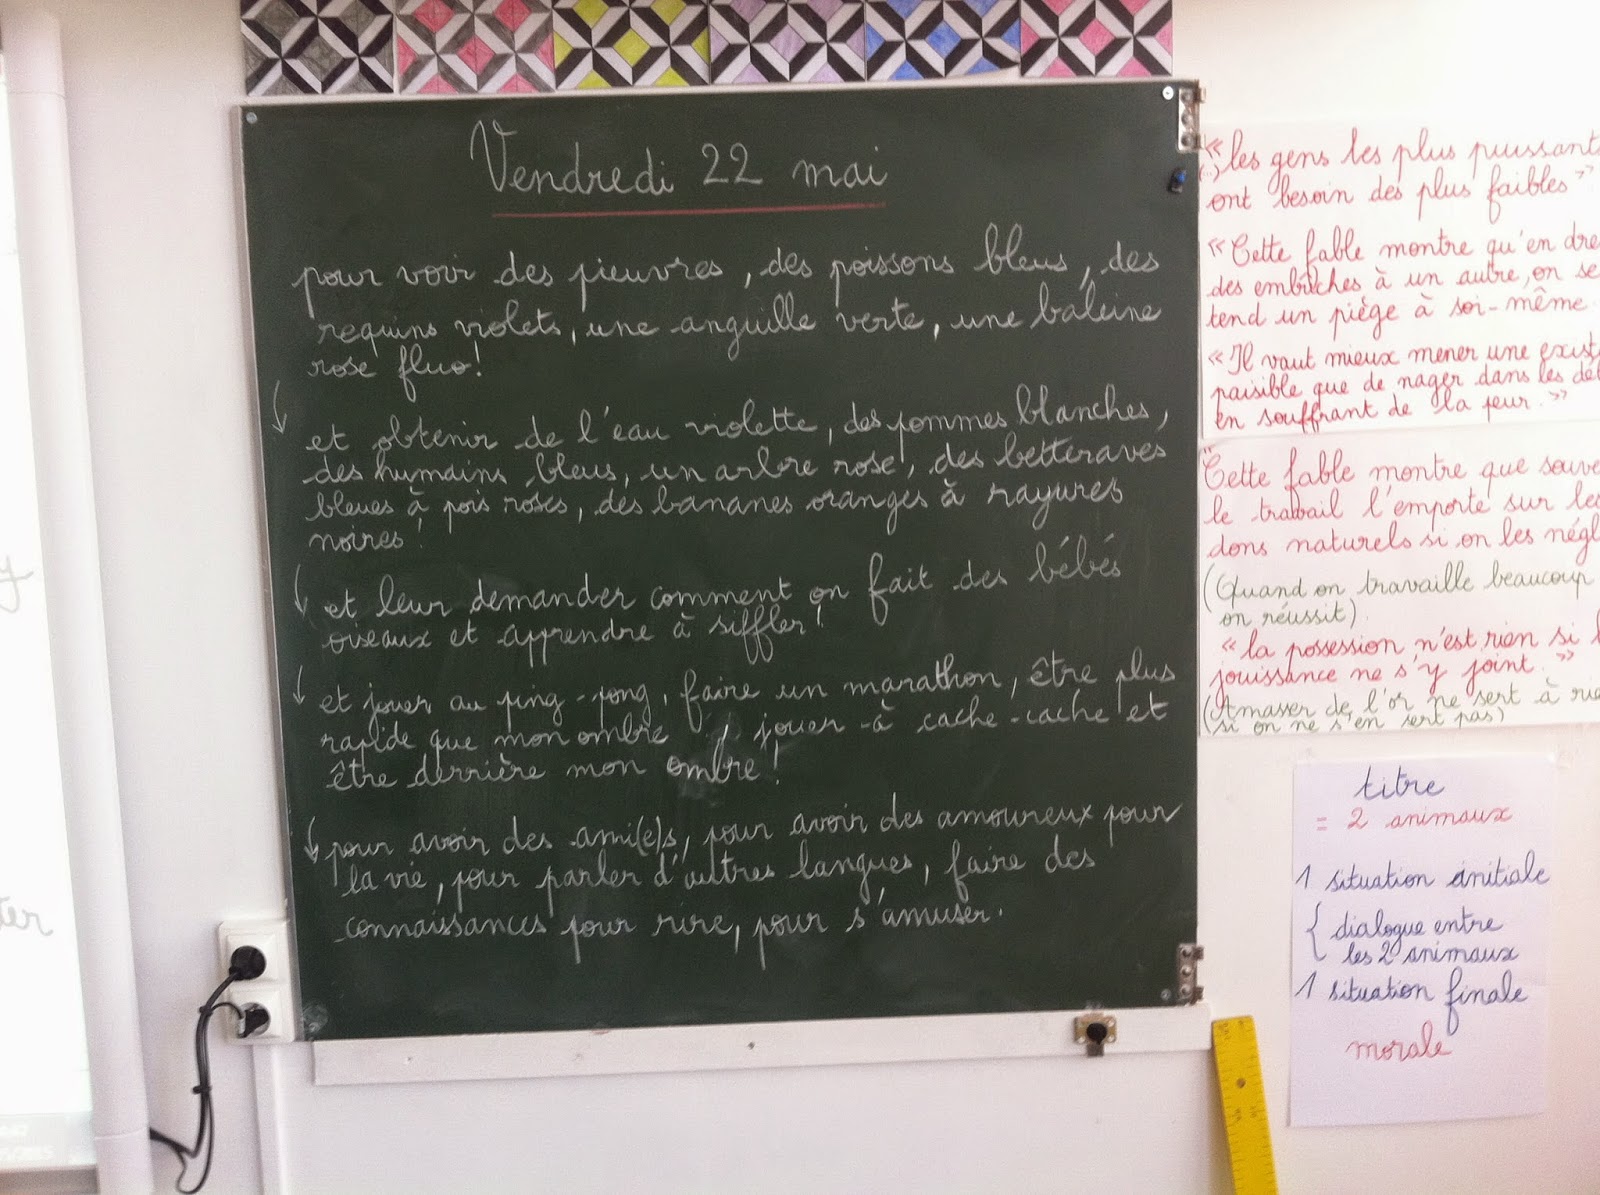 Vendredi 22 mai
pour voir des pieuvres, des poissons bleus, des
requins violets, une anguille verte, une baleine
rose fluo!
et obtenir de l'eau violette, des pommes blanches,
des humains bleus, un arbre rose, des betteraves
bleues à pois roses, des bananes oranges à rayures
noires!
et leur demander comment on fait des bébés
oiseaux et apprendre à siffler!
et jouer au ping-pong, faire un marathon, être plus
rapide que mon ombre, jouer à cache-cache et
être derrière mon ombre!
pour avoir des ami(e)s, pour avoir des amoureux pour
la vie, pour parler d'autres langues, faire des
connaissances pour rire, pour s'amuser.
« les gens les plus puissant
(...) ont besoin des plus faibles »
« Cette fable montre qu'en dre
des embûches à un autre, on se
tend un piège à soi-même
« Il vaut mieux mener une exist
paisible que de nager dans les dé
en souffrant de la peur. »
"Cette fable montre que souve
le travail l'emporte sur les
dons naturels si on les négl
(Quand on travaille beaucoup
on réussit)
« la possession n'est rien si l
jouissance ne s'y joint. »
(Amasser de l'or ne sert à rie
si on ne s'en sert pas)
titre
= 2 animaux
1 situation initiale
{ dialogue entre
les 2 animaux
1 situation finale
morale
ter